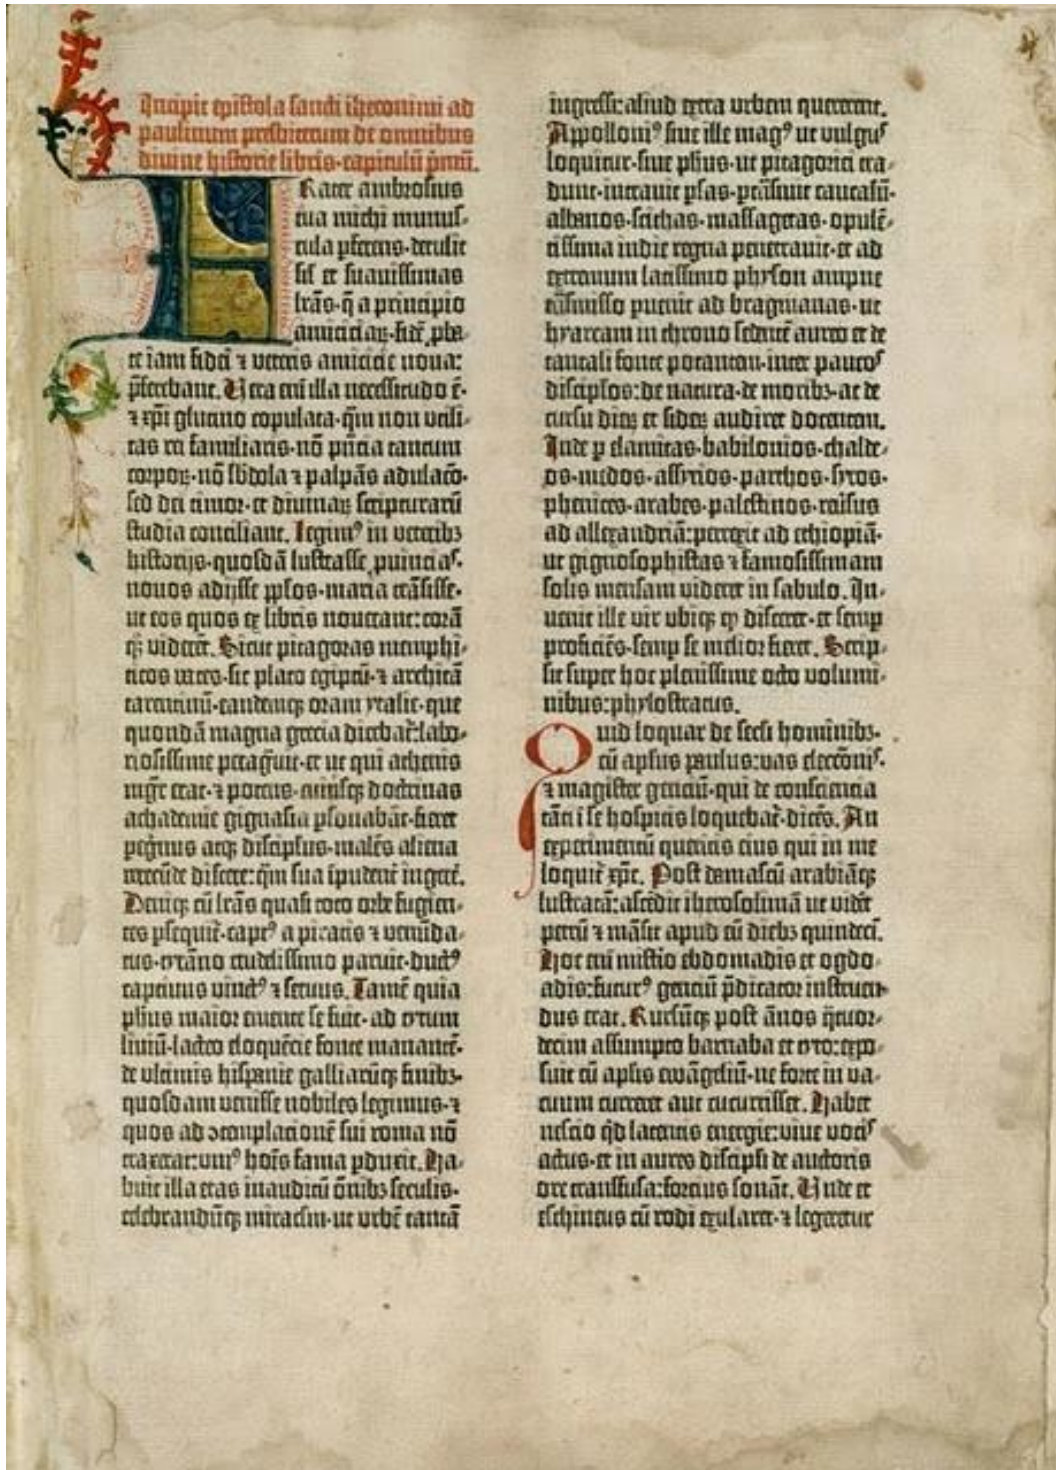 Incipit epistola sancti iheronimi ad
paulinum presbiterum de omnibus
divine historie libris·capitulū p̄mū.
Frater ambrosius
tua michi munus-
cula pferens·detulit
sil̄ et suavissimas
lrās·q̄ a principio
amiciciaꝝ·fidē ꝓba-
te iam fidei ⁊ veteris amicicie nova:
p̄ferebant. Vera enī illa necessitudo ē·
⁊ xp̄i glutino copulata·q̄m non utili-
tas rei familiaris·nō pn̄cia tantum
corpoꝝ·nō sb̄dola ⁊ palpās adulacō·
sed dei timor·et divinaꝝ scripturarū
studia conciliant. Legimꝰ in veteribꝫ
historijs·quosdā lustrasse ꝓuinciaˢ·
novos adijsse pp̄los·maria trāsisse·
ut eos quos ex libris noverant: corā
qꝫ viderēt. Sicut pitagoras memphi-
ticos vates·sic plato egiptū·⁊ architā
tarentinū·eandemqꝫ oram ytalie·que
quondā magna grecia dicebat̄: labo-
riosissime peragͣvit·et ut qui athenis
mgr̄ erat·⁊ potens·cuiusqꝫ doctrinas
achademie gignasia ꝑsonabāt·fieret
pegͥnus atqꝫ discipl̄us·malēs aliena
verecūde discere: q̄m sua īpudent̄ ingerē.
Deniqꝫ cū lrās quasi toto orbe fugien-
tes ꝑsequit̄·captꝰ a piratis ⁊ venūda-
tus·tyrāno crudelissimo paruit·ductꝰ
captivus vinctꝰ ⁊ servus. Tamē quia
ph̄us maior emente se fuit·ad tytum
liviū·lacteo eloquēcie fonte manantē·
de ultimis hispanie galliarūqꝫ finibꝫ·
quosdam venisse nobiles legimus·⁊
quos ad ↄtemplacionē sui roma nō
traxerat: uniꝰ hoīs fama ꝑduxit. Ha-
buit illa etas inauditū oīnibꝫ seculis·
celebrandūqꝫ miraclm̄·ut urbē tantā
ingressi: aliud extra urbem quererent.
Appolloniꝰ sive ille magꝰ ut vulgusˢ
loquitur·sive ph̄us·ut pitagorici tra-
dunt·intravit ꝑsas·ptrāsivit caucasū·
albanos·scithas·massagetas·opulē-
tissima indie regna penetravit·et ad
extremum latissimo physon ampne
trāsmisso pervenit ad bragmanas·ut
hyarcam in throno sedentē aureo et de
tantali fonte potantem·inter paucoˢ
discipl̄os: de natura·de moribꝫ·ac de
cursu dieꝝ et sideꝝ audiret docentem.
Inde ꝑ elamitas·babilonios·chalde-
os·medos·assyrios·parthos·syros·
phenices·arabes·palestinos·rev̄sus
ad allexandriā: perrexit ad ethiopiā·
ut gignosophistas ⁊ famosissimam
solis mensam videret in sabulo. In-
venit ille vir ubiqꝫ qd̄ disceret·et semꝑ
proficiēs·semꝑ se melior fieret. Scrip-
sit super hoc plenissime octo volumi-
nibus: phylostratus.
Quid loquar de secli hominibꝫ·
cū apl̄us paulus: vas eleccōnis·
⁊ magister genciū·qui de consciencia
tāti ī se hospitis loquebat̄·dicēs. An
experimentū queritis eius qui in me
loquit̄ xp̄c. Post damascū arabiāqꝫ
lustratā: ascēdit iherosolimā ut vidēt
petrū ⁊ māsit apud eū diebꝫ quindecī.
Hoc enī mistio ebdomadis et ogdo-
adis: futurꝰ genciū p̄dicator instruen-
dus erat. Rursūqꝫ post ānos q̄tuor-
decim assumpto barnaba et tyto: expo-
suit cū apl̄is ewāgeliū·ne forte in va-
cuum curreret aut cucurrisset. Habet
nescio qd̄ latentis energie: vive vociˢ
actus·et in aures discipl̄i de auctoris
ore transfusa: forcius sonāt. Unde et
eschineus cū rodi exularet·⁊ legeretur